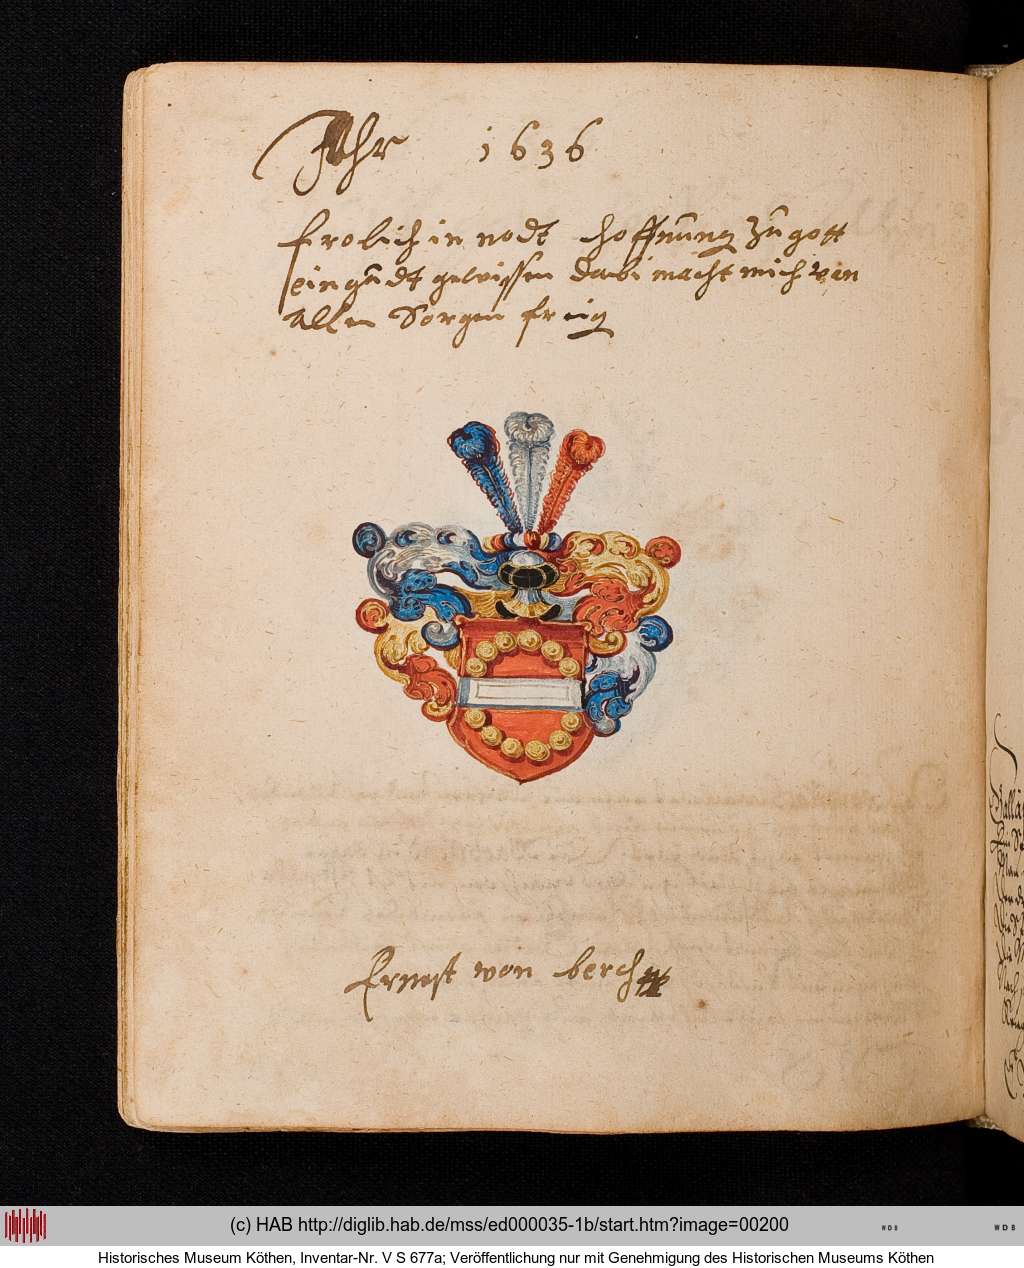 Jhr 1636
frolich in nodt hoffnung zu gott
ein gudt gewissen dabi macht mich von
allen Sorgen freig
Ernest von berch
(c) HAB http://diglib.hab.de/mss/ed000035-1b/start.htm?image=00200
WDB
WDB
Historisches Museum Köthen, Inventar-Nr. V S 677a; Veröffentlichung nur mit Genehmigung des Historischen Museums Köthen